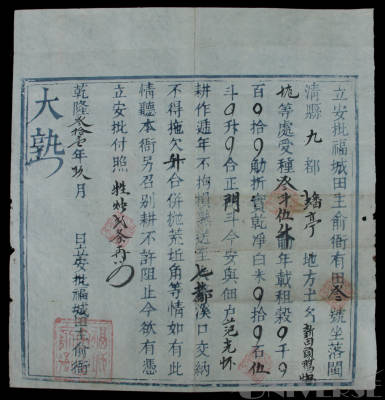 立安批福城田主俞衙有田叁號坐落閩
清縣九都 地方土名新田
等處受種叁斗伍升 年載租穀〇千〇
百〇拾〇觔折實乾净白米〇拾〇石伍
斗〇升〇合正 斗今安與佃 范光怀
耕作遞年不拘損熟送至七都溪口交納
不得拖欠升合併抛荒近角等情如有此
情聽本衙另召别耕不許阻止今欲有憑
立安批付照 再
乾隆 年玖月 日立安批福城田主俞衙
大熟
UNIVERSE